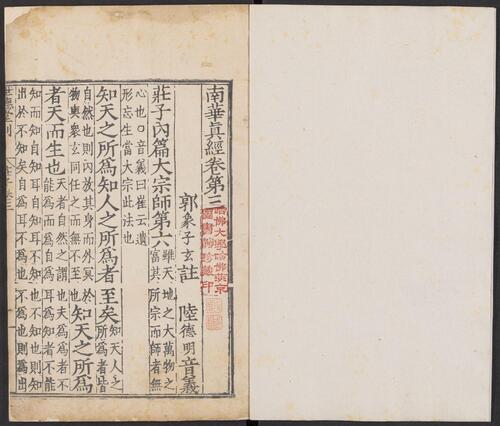 南華眞經卷第三
哈佛大學哈佛燕京
圖書館珍藏印
郭象子玄註 陸德明音義
莊子內篇大宗師第六 雖天地之大萬物之
富其所宗而師者無
心也〇音義曰崔云遺
形忘生當大宗此法也
知天之所為知人之所為者至矣 知天人之
所為者皆
自然也則內放其身而外冥於
物與衆玄同任之而無不至也 知天之所為
者天而生也 天者自然之謂也夫為為者不
能為而為自為耳為知者不能
知而知自知耳自知耳不知也不知也則知
出於不知矣自為耳不為也不為也則為出